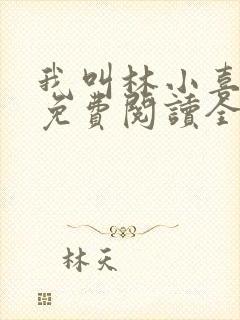 我叫林小喜
免費閱讀全
林天